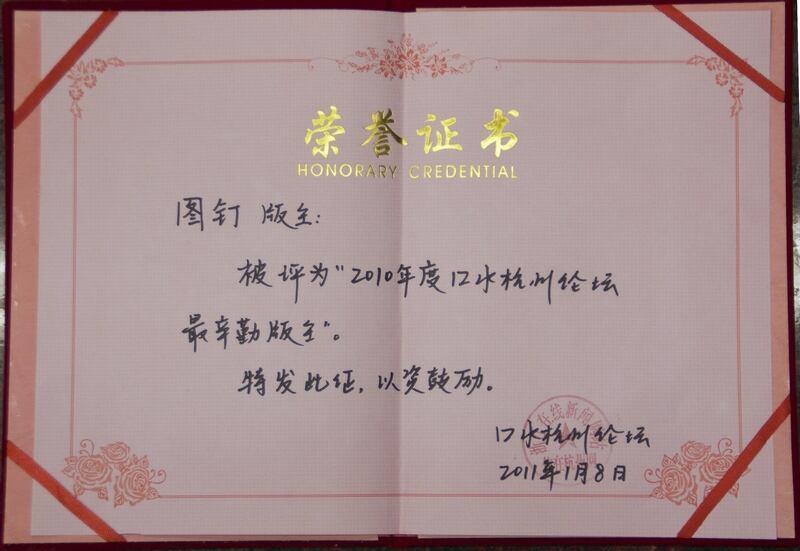 荣誉证书
HONORARY CREDENTIAL
图钉 版主：
被评为“2010年度口水杭州论坛
最辛勤版主”。
特发此证，以资鼓励。
口水杭州论坛
2011年1月8日